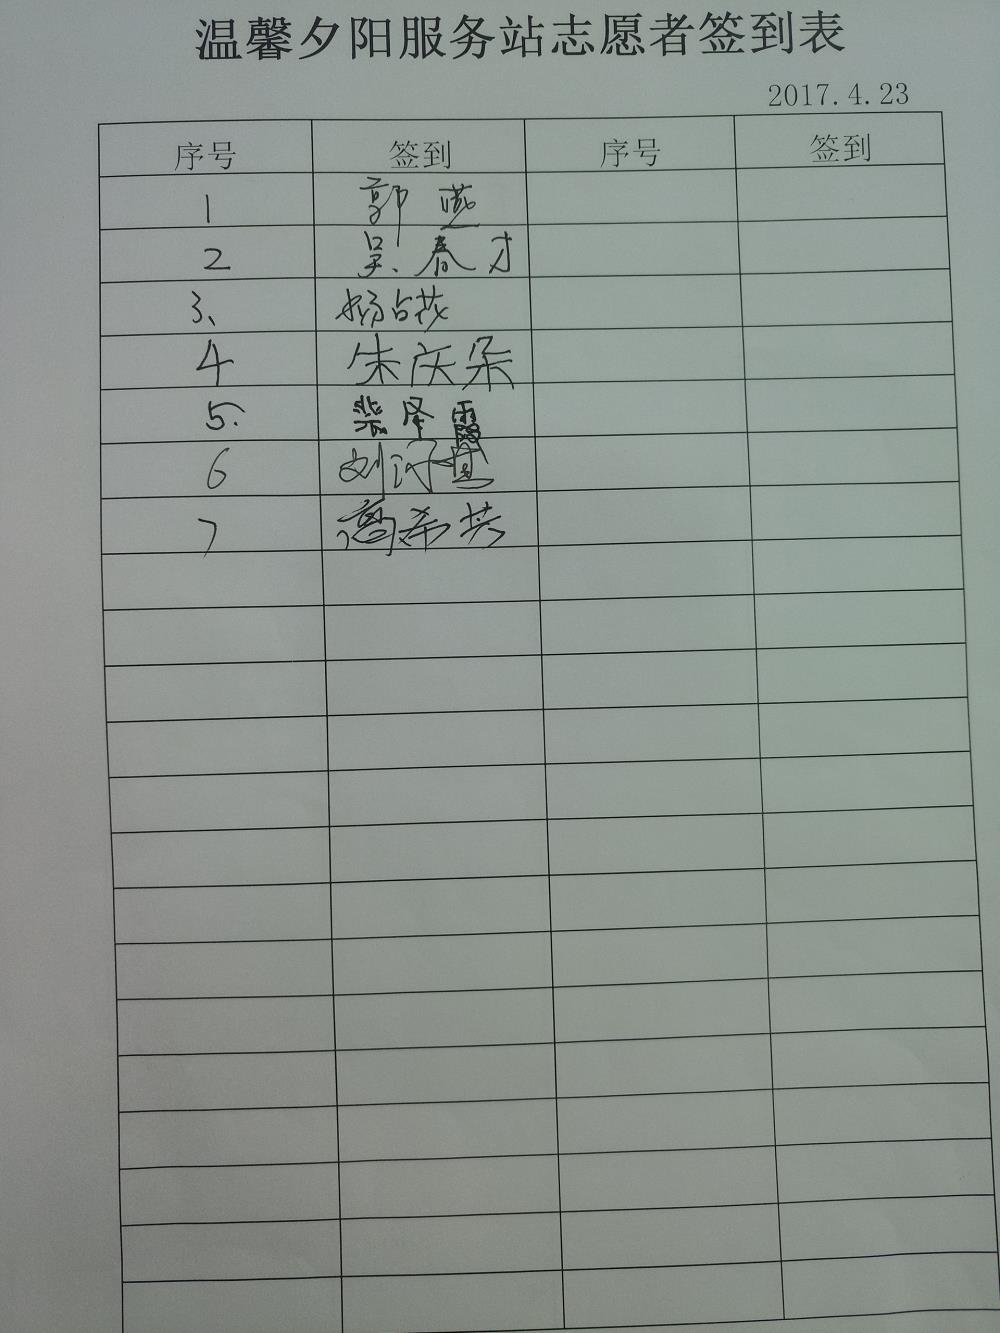 温馨夕阳服务站志愿者签到表
2017.4.23
序号 签到 序号 签到
1 郭燕
2 吴春才
3、杨占茂
4 朱庆朵
5. 裴泽霞
6 刘
7 高希英